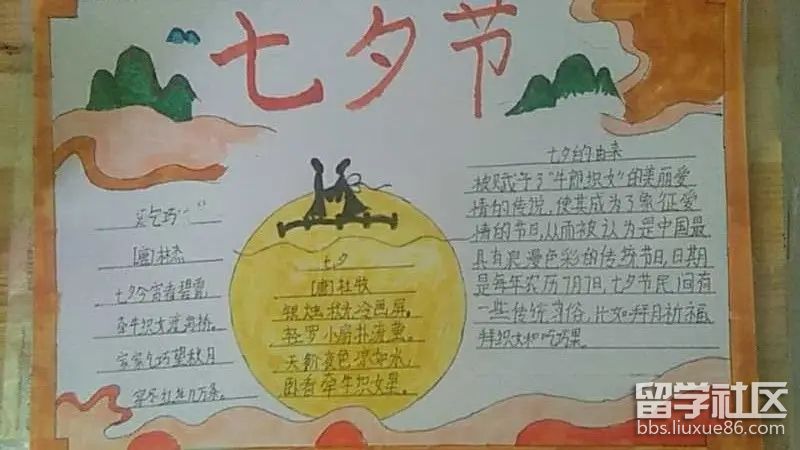 七夕节
乞巧
[唐]林杰
七夕今宵看碧霄
牵牛织女渡河桥。
家家乞巧望秋月
穿尽红丝几万条。
七夕
[唐]杜牧
银烛秋光冷画屏。
轻罗小扇扑流萤。
天街夜色凉如水,
卧看牵牛织女星。
七夕的由来
被赋予了"牛郎织女"的美丽爱
情的传说,使其成为了象征爱
情的节日,从而被认为是中国最
具有浪漫色彩的传统节日,日期
是每年农历7月7日,七夕节民间有
一些传统习俗,比如拜月祈福
拜织女和吃巧果。
留学社区
bbs.liuxue86.com